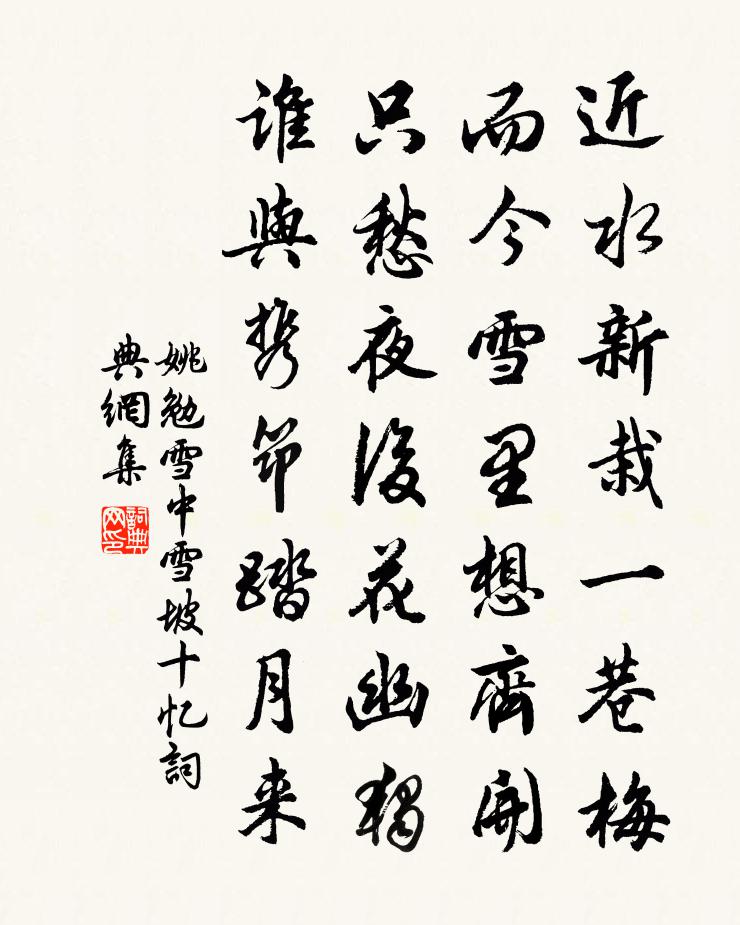 近水新栽一巷梅
而今雪里想齊開
只愁夜後花幽獨
誰與携筇踏月来
姚勉雪中雪坡十忆詞
典網集
詞典
网印